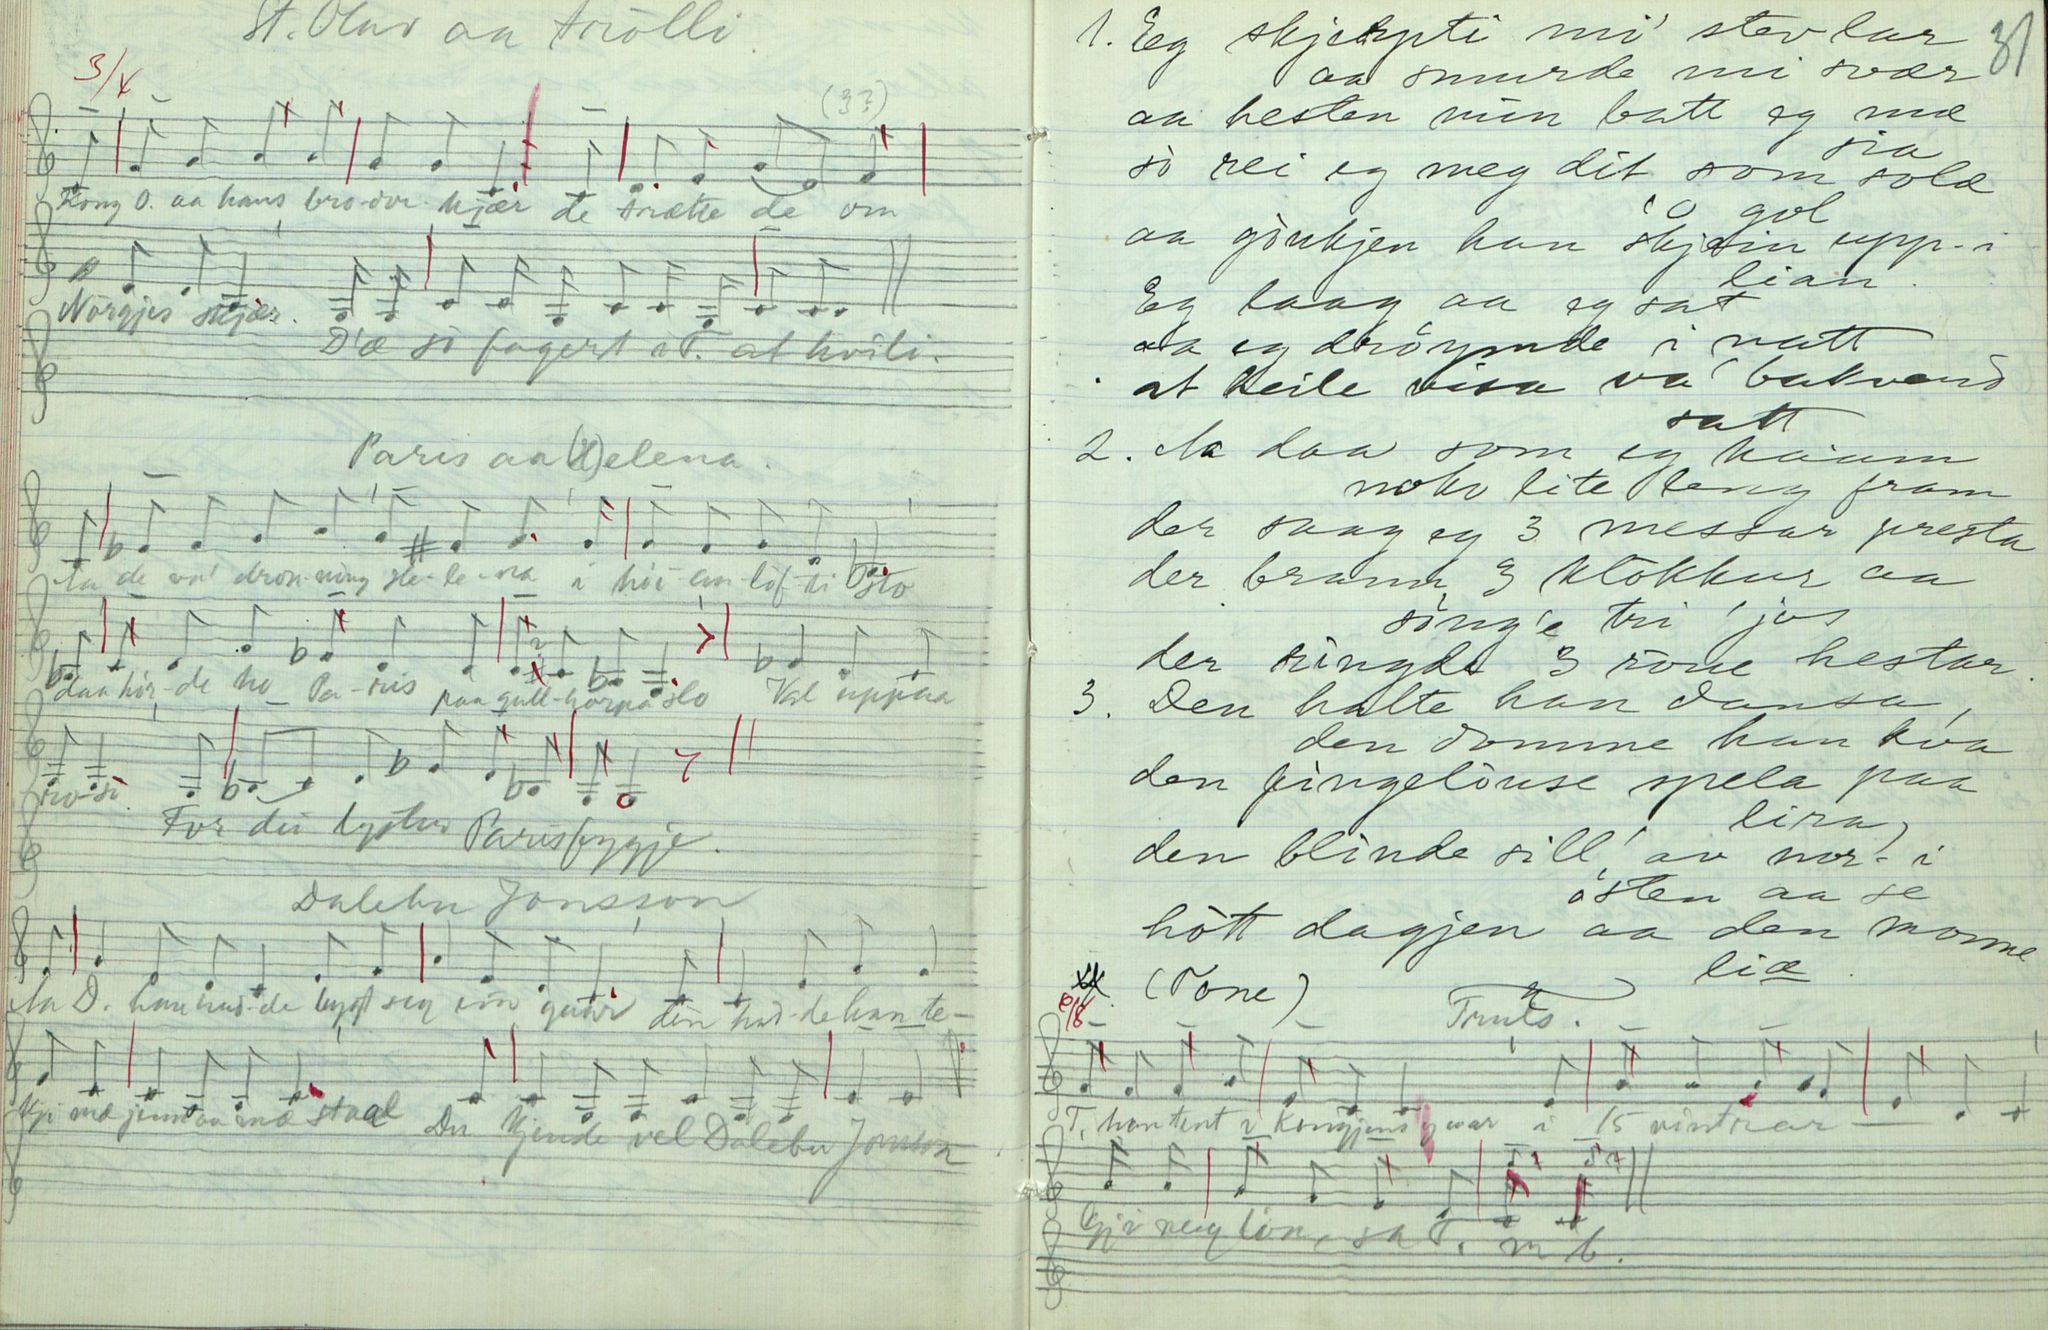 St. Olav aa trolli
3/4
(33)
Kong O. aa hans bro-dor kjær de trætte de om
Norgjes skjær. D'æ so fagert i T. at hvili.
Paris aa (H)elena.
Aa de va' dron-ning He-le-na i höi-en-lof-ti sto
daa hör-de ho Pa-ris paa gull-horpa slo Val uppaa
For dei lyster Paris byggje.
Dalebu Jonsson
Aa D. han had-de bygt seg ein gaar den had-de han te-
kji mæ jonn aa mæ staal Du kjende vel Dalebu Jonson
31
1. Eg skjerpti mi' stevlar
aa smurde mi svær
aa hesten min batt eg mæ
sia
so rei eg meg dit som sole
gol
aa gaukjen han skjein upp-i
lian.
Eg laag aa eg sat
aa eg dröymde i natt
at heile visa va' bakvend
satt
2. Aa daa som eg kaam
noko lite leng fram
der saag eg 3 messar presta
der brann 3 klokkur aa
söng'e tri' jos
der ringde 3 röue hestar.
3. Den halte han dansa,
den domme han kva
den fingelouse spela paa
lira,
den blinde sill' av nor- i
östen aa se
hött dagjen aa den monne
liæ.
(Tone)
6/8
Truls.
T. han tent i kongjens gaar i 15 vintrar
Gji meg lön, sa T. m b.